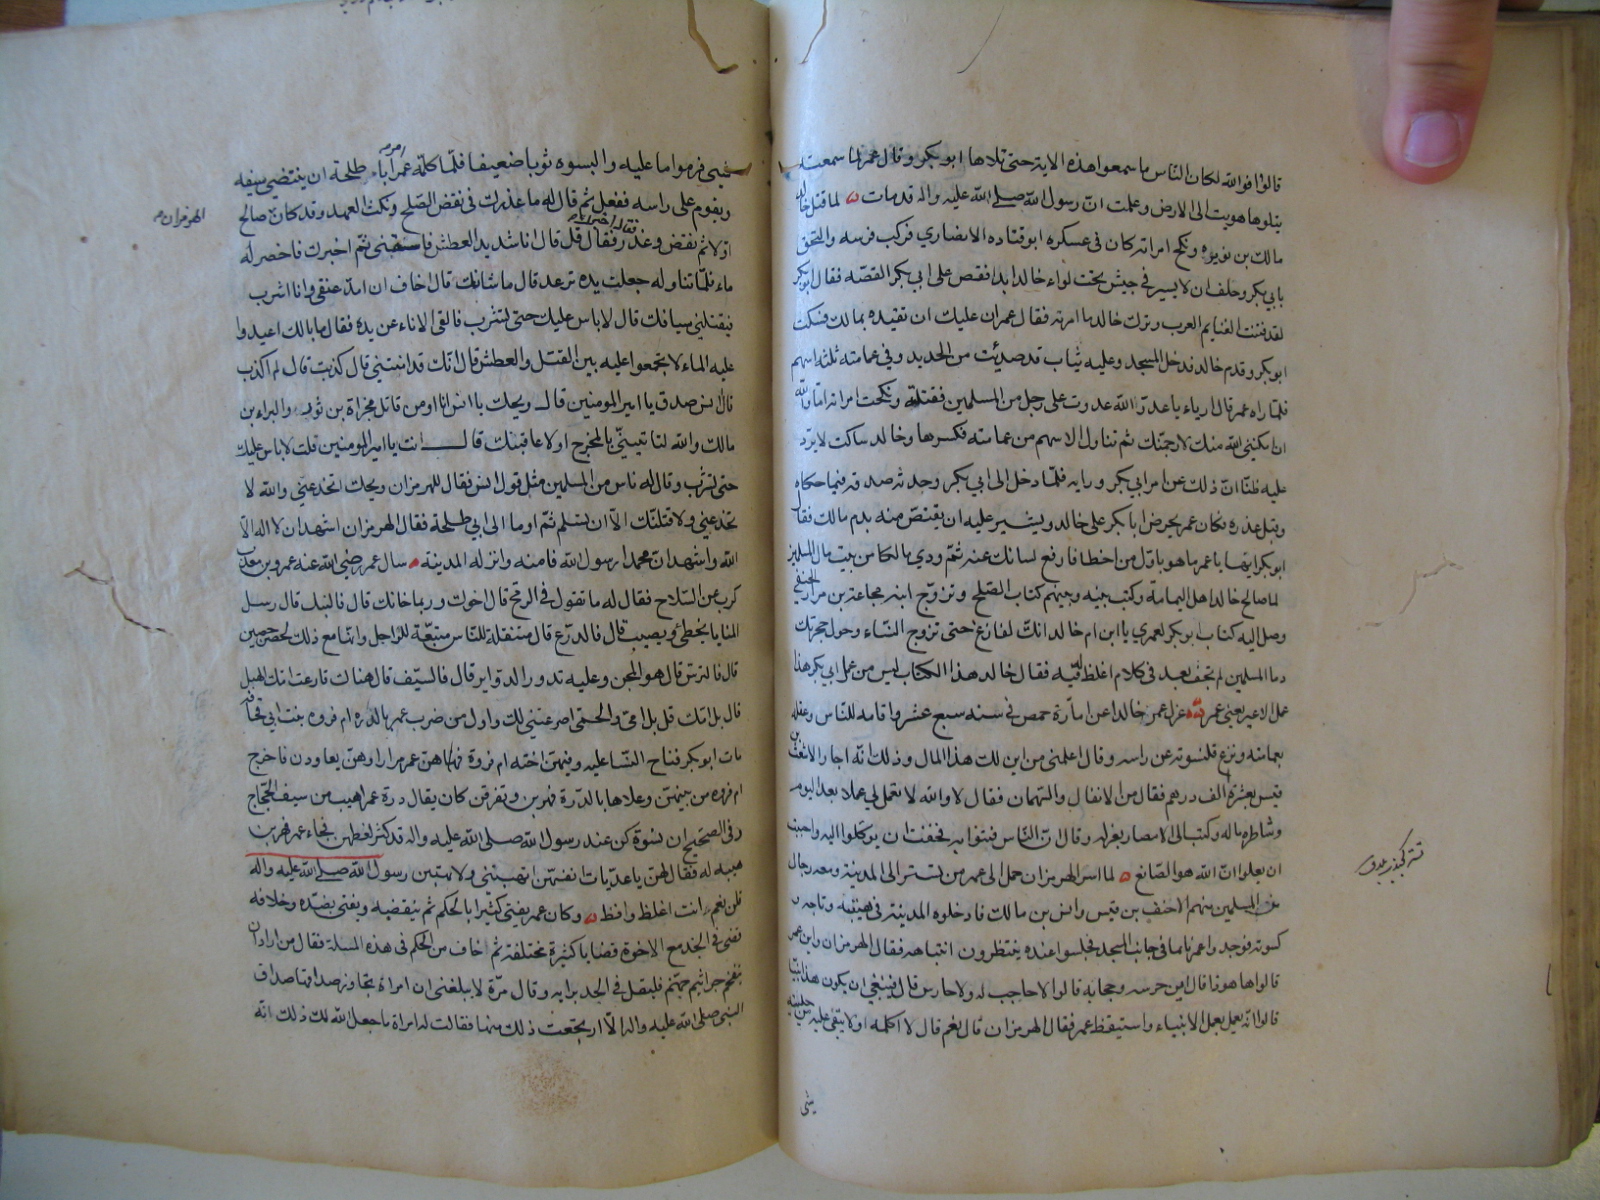 قالوا فوالله لكان الناس ما سمعوا هذه الاية حتى تلاها ابو بكر وقال عمر لما سمعته
يتلوها هويت الى الارض وعلمت ان رسول الله صلى الله عليه واله قد مات لما قتل خالد
مالك بن نويره ونكح امراته كان في عسكره ابو قتاده الانصاري فركب فرسه والتحق
بابي بكر وحلف ان لا يسير في جيش تحت لواء خالد ابدا فقص على ابي بكر القصه فقال ابو بكر
لقد فتنت الغنايم العرب وترك خالد ما امرته فقال عمر ان عليك ان تقيده بمالك فسكت
ابو بكر وقدم خالد فدخل المسجد وعليه ثياب قد صديت من الحديد وفي عمامته ثلثة اسهم
فلما راه عمر قال ارياء يا عدو الله عدوت على رجل من المسلمين فقتلته ونكحت امراته اما والله
ان امكنني الله منك لارجمنك ثم تناول الاسهم من عمامته فكسرها وخالد ساكت لا يرد
عليه ظنا ان ذلك عن امر ابي بكر ورايه فلما دخل الى ابي بكر وحدثه صدقه فيما حكاه
وقبل عذره فكان عمر يحرض ابا بكر على خالد ويشير عليه ان يقتص منه بدم مالك فقال
ابو بكر ايها يا عمر ما هو باول من اخطا فارفع لسانك عنه ثم ودى مالكا من بيت مال المسلمين
لما صالح خالد اهل اليمامة وكتب بينه وبينهم كتاب الصلح وتزوج ابنه مجاعة بن مرارة الحنفي
وصل اليه كتاب ابو بكر لعمري يا ابن ام خالد انك لفارغ حتى تزوج النساء وحول حجرتك
دما المسلمين لم تجف بعد في كلام اغلظ له فيه فقال خالد هذا الكتاب ليس من عمل ابي بكر هذا
عمل الاعيسر يعني عمر عزل عمر خالدا عن امارة حمص في سنه سبع عشر واقامه للناس وعقله
بعمامته ونزع قلنسوته عن راسه وقال اعلمني من اين لك هذا المال وذلك انه اجاز الاشعث بن
قيس بعشرة الف درهم فقال من الانفال والسهمان فقال لا والله لا تعمل لي عملا بعد اليوم
وشاطره ماله وكتب الى الامصار بعزله وقال ان الناس فتنوا به فخفت ان يوكلوا اليه واحببت
ان يعلموا ان الله هو الصانع لما اسر الهرمزان حمل الى عمر من تستر الى المدينة ومعه رجال
من المسلمين منهم الاحنف بن قيس وانس بن مالك فادخلوه المدينة في هيئته وتاجه و
كسوته فوجدوا عمر نايما في جانب المسجد فجلسوا عنده ينتظرون انتباهه فقال الهرمزان واين عمر
قالوا ها هوذا قال اين حرسه وحجابه قالوا لا حاجب له ولا حارس قال فينبغي ان يكون هذا نبيا
قالوا انه يعمل بعمل الانبياء واستيقظ عمر فقال الهرمزان قال نعم قال لا اكلمه او لا يبقى عليه من حليته
شي
شيي فرموا ما عليه والبسوه ثوبا ضعيفا فلما كلمه عمر امر ابا طلحة ان ينتضي سيفه
ويقوم على راسه ففعل ثم قال له ما عذرك في نقض الصلح ونكث العهد وقد كان صالح
اولا ثم نقض وغدر فقال اخبرك قال قل قال انا شديد العطش فاسقني ثم اخبرك فاحضر له
ماء فلما تناوله جعلت يده ترعد قال ما شانك قال اخاف ان امد عنقي وانا اشرب
فيقتلني سيافك قال لا باس عليك حتى تشرب فالقى الاناء عن يده فقال ما بالك اعيدوا
عليه الماء لا تجمعوا عليه بين القتل والعطش قال انك قد امنتني قال كذبت قال لم اكذب
قال انس صدق يا امير المومنين قال ويحك يا انس انا اومن قاتل مجزاة بن ثور والبراء بن
مالك والله لتاتيني بالمخرج او لاعاقبنك قال انت يا امير المومنين قلت لا باس عليك
حتى تشرب وقال له ناس من المسلمين مثل قول انس فقال للهرمزان ويحك اتخدعني والله لا
تخدعني ولاقتلنك الا ان تسلم ثم اوما الى ابي طلحة فقال الهرمزان اشهد ان لا اله الا
الله واشهد ان محمدا رسول الله فامنه وانزله المدينة سال عمر رضي الله عنه عمرو بن معدي
كرب عن السلاح فقال له ما تقول في الرمح قال اخوك وربما خانك قال فالنبل قال رسل
المنايا يخطي ويصيب قال فالدرع قال مشغلة للناس متعبة للراجل وانها مع ذلك لحصن حصين
قال فالترس قال هو المجن وعليه تدور الدواير قال فالسيف قال هناك قارعت امك الهبل
قال بل امك قال بل امي والحمى اصرعتني لك واول من ضرب عمر بالدره ام فروه بنت ابي قحافه
مات ابو بكر فناح النسا عليه وفيهن اخته ام فروة فنهاهن عمر مرارا وهن يعاودن فاخرج
ام فروه من بينهن وعلاها بالدرة فهربن وتفرقن كان يقال درة عمر اهيب من سيف الحجاج
وفي الصحيح ان نسوة كن عند رسول الله صلى الله عليه واله قد كثر لغطهن فجاء عمر فهربن
هيبه له فقال لهن يا عديات انفسهن اتهبنني ولا تهبن رسول الله صلى الله عليه واله
قلن نعم انت اغلظ وافظ وكان عمر يفتي كثيرا بالحكم ثم ينقضه ويفتي بضده وخلافه
قضى في الجد مع الاخوة قضايا كثيرة مختلفة ثم خاف من الحكم في هذه المسلة فقال من اراد ان
يتقحم جراثيم جهنم فليقل في الجد برايه وقال مرة لا يبلغني ان امراة تجاوز صداقها صداق
النبي صلى الله عليه واله الا ارتجعت ذلك منها فقالت له امراة ما جعل الله لك ذلك انه
الهرمزان